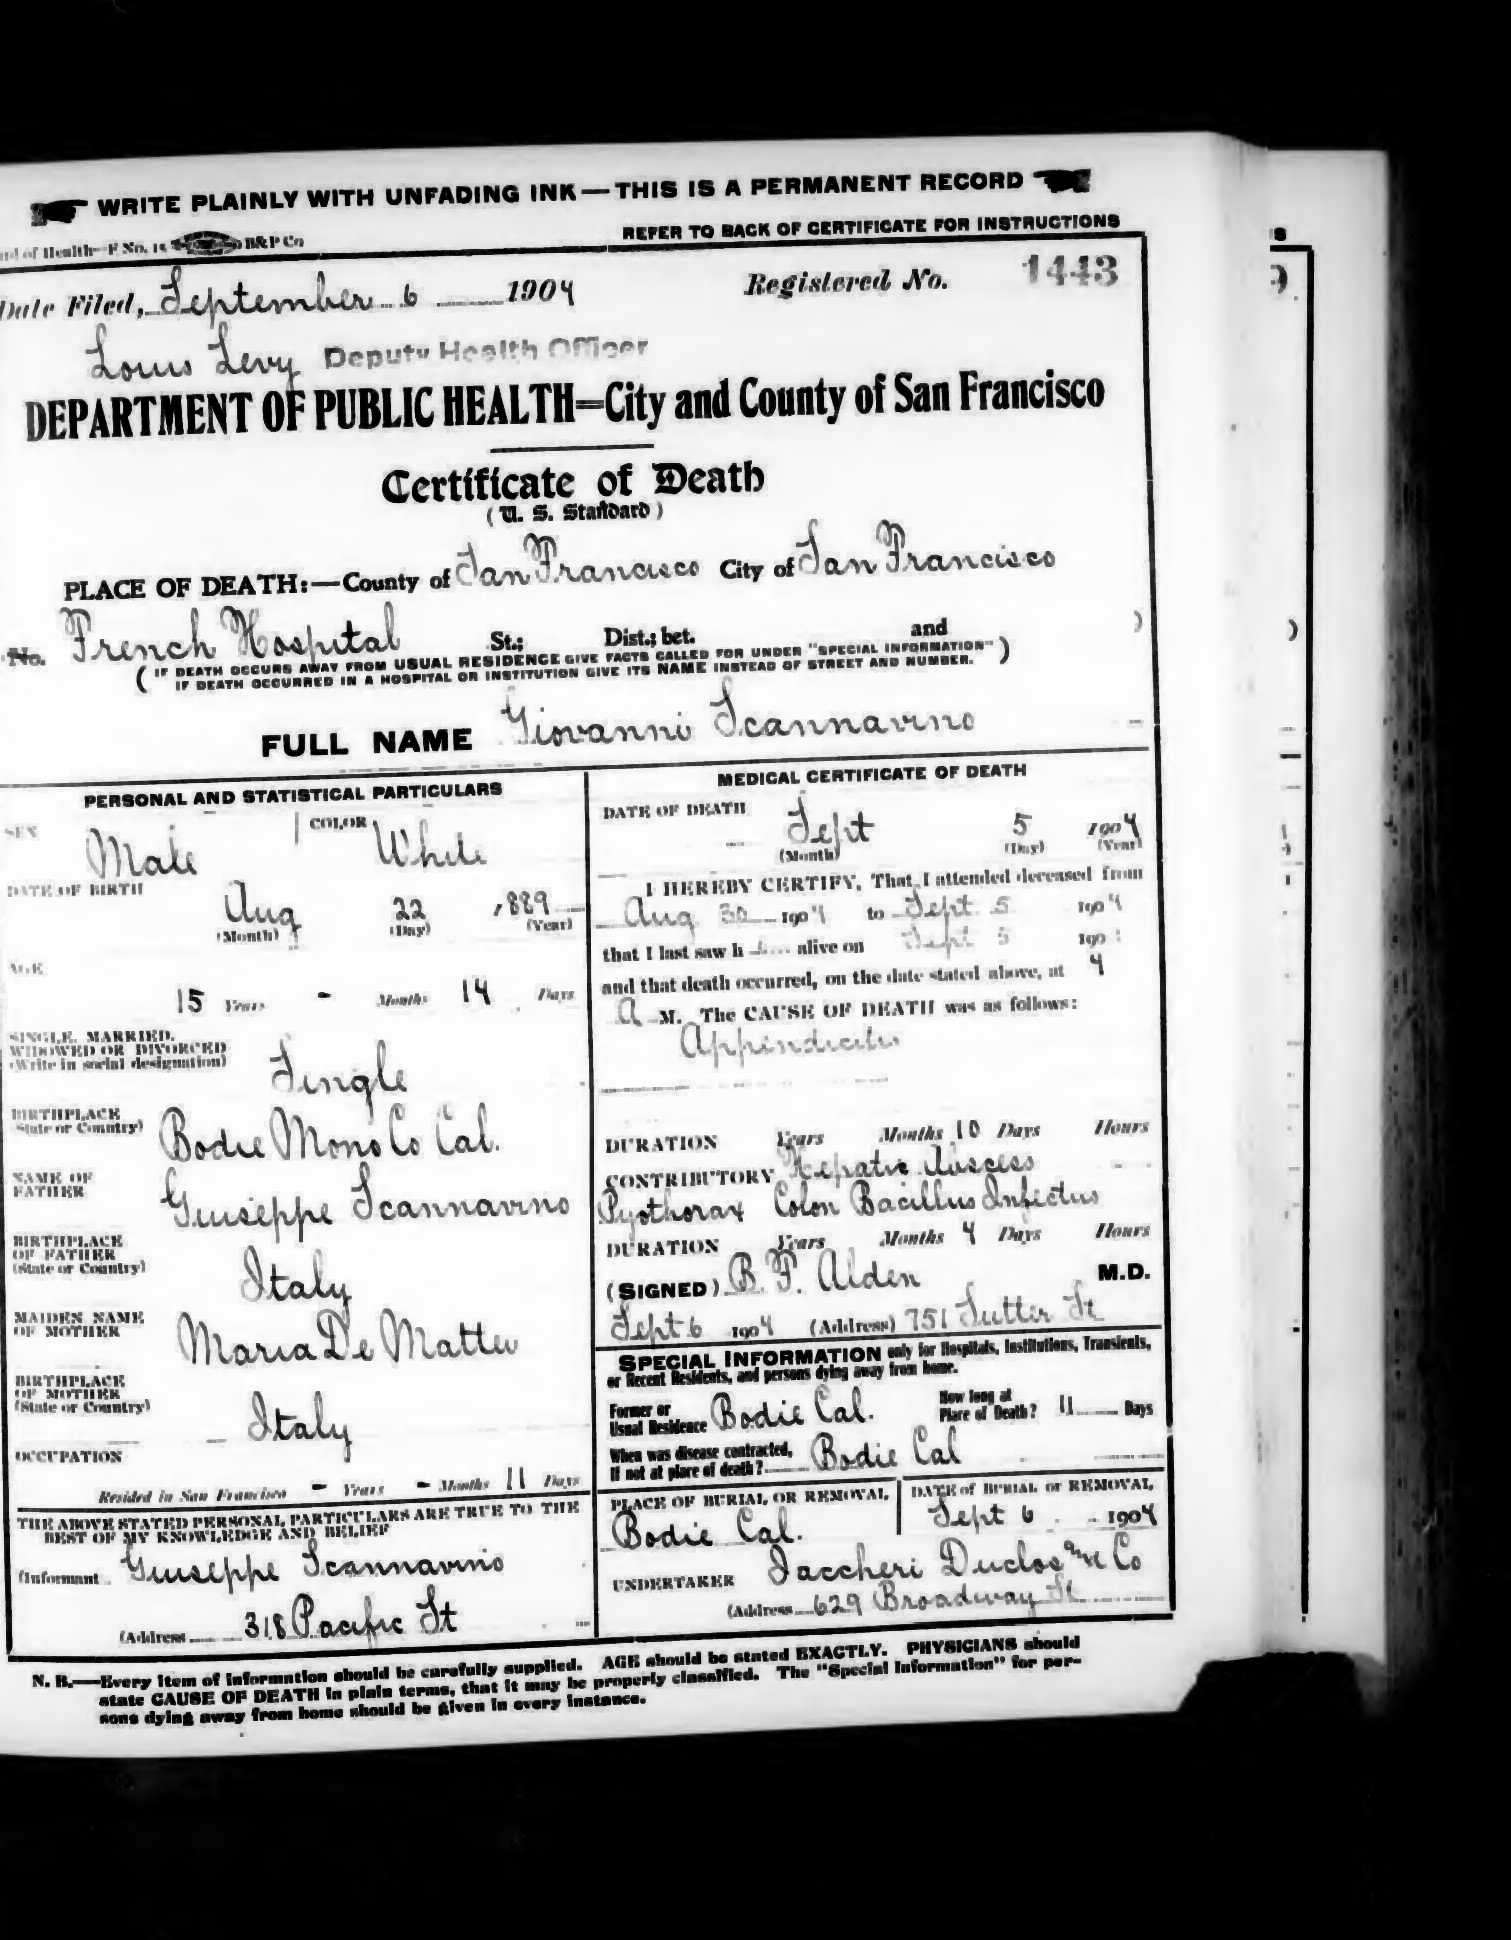 WRITE PLAINLY WITH UNFADING INK—THIS IS A PERMANENT RECORD
of Health—F No. B&P Co REFER TO BACK OF CERTIFICATE FOR INSTRUCTIONS
Date Filed, September 6 1904 Registered No. 1443
Louis Levy Deputy Health Officer
DEPARTMENT OF PUBLIC HEALTH=City and County of San Francisco
Certificate of Death
(U. S. Standard)
PLACE OF DEATH:—County of San Francisco City of San Francisco
No. French Hospital St.; Dist.; bet. and )
( IF DEATH OCCURS AWAY FROM USUAL RESIDENCE GIVE FACTS CALLED FOR UNDER "SPECIAL INFORMATION" )
IF DEATH OCCURRED IN A HOSPITAL OR INSTITUTION GIVE ITS NAME INSTEAD OF STREET AND NUMBER.
FULL NAME Giovanni Scannavino
PERSONAL AND STATISTICAL PARTICULARS
SEX Male COLOR White
DATE OF BIRTH
Aug 22 1889
(Month) (Day) (Year)
AGE
15 Years - Months 14 Days
SINGLE, MARRIED,
WIDOWED OR DIVORCED
(Write in social designation) Single
BIRTHPLACE
(State or Country) Bodie Mono Co Cal.
NAME OF
FATHER Giuseppe Scannavino
BIRTHPLACE
OF FATHER
(State or Country) Italy
MAIDEN NAME
OF MOTHER Maria De Mattei
BIRTHPLACE
OF MOTHER
(State or Country) Italy
OCCUPATION
Resided in San Francisco - Years - Months 11 Days
THE ABOVE STATED PERSONAL PARTICULARS ARE TRUE TO THE
BEST OF MY KNOWLEDGE AND BELIEF
(Informant Giuseppe Scannavino
(Address 318 Pacific St
MEDICAL CERTIFICATE OF DEATH
DATE OF DEATH
Sept 5 1904
(Month) (Day) (Year)
I HEREBY CERTIFY, That I attended deceased from
Aug 30 1904 to Sept 5 1904
that I last saw h alive on Sept 5 190
and that death occurred, on the date stated above, at 4
A M. The CAUSE OF DEATH was as follows:
Appendicitis
DURATION Years Months 10 Days Hours
CONTRIBUTORY Hepatic Abscess
Pyothorax Colon Bacillus Infectus
DURATION Years Months 4 Days Hours
(SIGNED) B. F. Alden M.D.
Sept 6 1904 (Address) 751 Sutter St
SPECIAL INFORMATION only for Hospitals, Institutions, Transients,
or Recent Residents, and persons dying away from home.
Former or
Usual Residence Bodie Cal. How long at
Place of Death? 11 Days
When was disease contracted,
If not at place of death? Bodie Cal
PLACE OF BURIAL OR REMOVAL DATE of BURIAL or REMOVAL
Bodie Cal. Sept 6 1904
UNDERTAKER Iaccheri Duclos and Co
(Address 629 Broadway St
N. B.—Every item of information should be carefully supplied. AGE should be stated EXACTLY. PHYSICIANS should
state CAUSE OF DEATH in plain terms, that it may be properly classified. The "Special Information" for per-
sons dying away from home should be given in every instance.